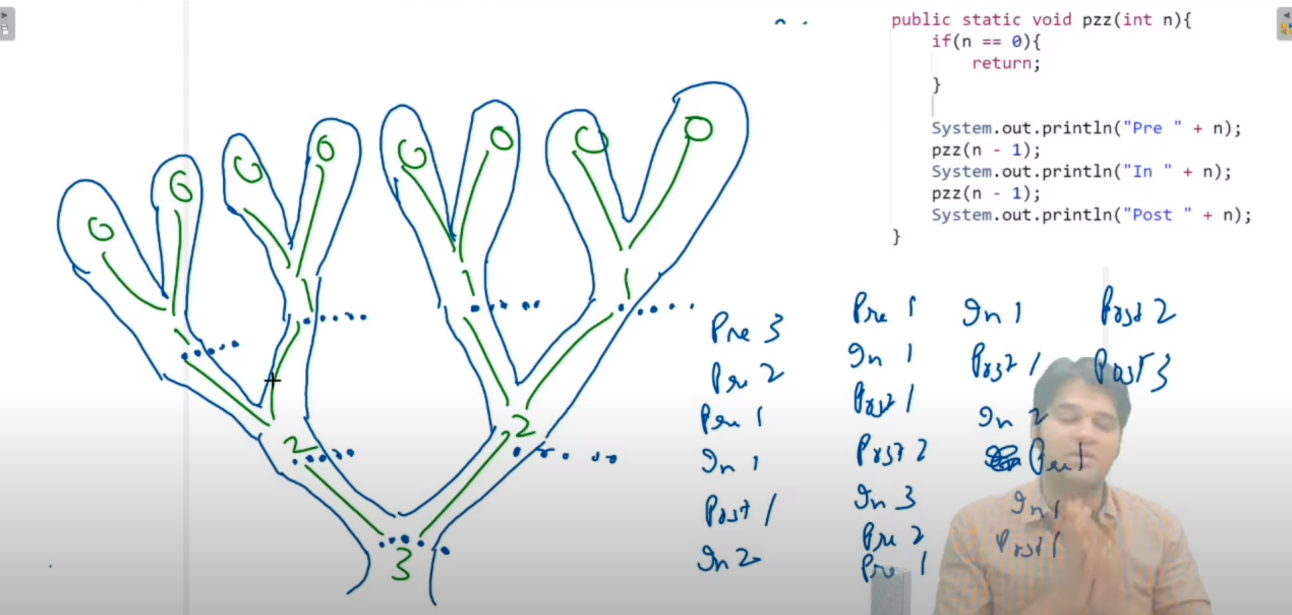 public static void pzz(int n){
if(n == 0){
return;
}
System.out.println("Pre " + n);
pzz(n - 1);
System.out.println("In " + n);
pzz(n - 1);
System.out.println("Post " + n);
}
0 0 0 0 0 0 0 0
1 1
2 2
3
Pre 3
Pre 2
Pre 1
In 1
Post 1
In 2
Pre 1
In 1
Post 1
Post 2
In 3
Pre 2
Pre 1
In 1
Post 1
In 2
Pre 1
In 1
Post 1
Post 2
Post 3